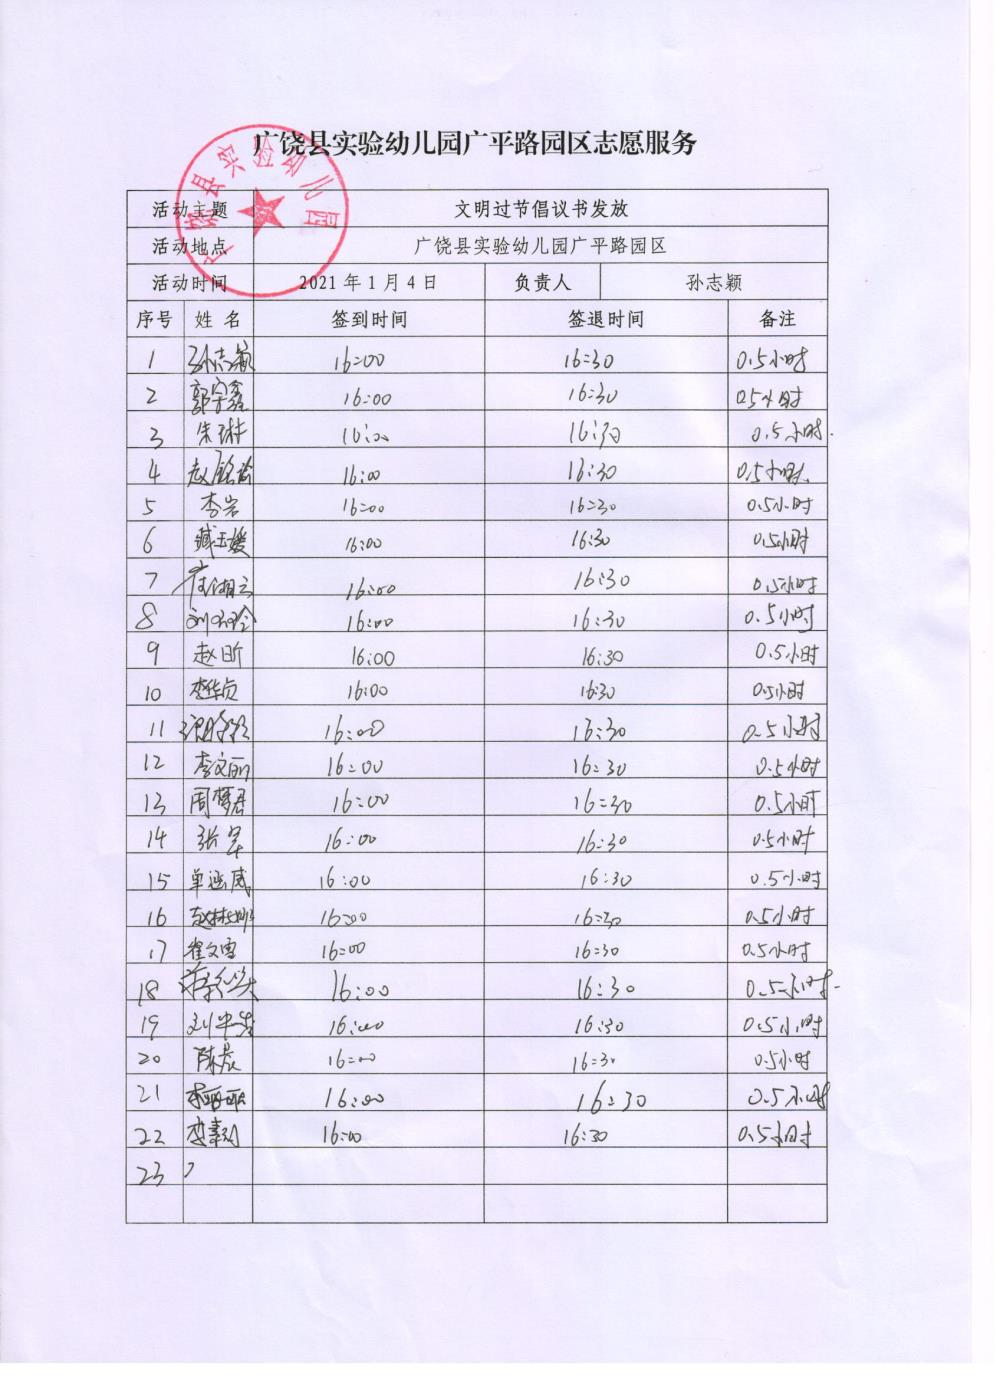 广饶县实验幼儿园广平路园区志愿服务
广饶县实验幼儿园
活动主题 文明过节倡议书发放
活动地点 广饶县实验幼儿园广平路园区
活动时间 2021年1月4日 负责人 孙志颖
序号 姓名 签到时间 签退时间 备注
1 孙志颖 16:00 16:30 0.5小时
2 16:00 16:30 0.5小时
3 朱琳 16:00 16:30 0.5小时.
4 16:00 16:30 0.5小时.
5 李岩 16:00 16:30 0.5小时
6 臧玉媛 16:00 16:30 0.5小时
7 16:00 16:30 0.5小时
8 16:00 16:30 0.5小时
9 赵昕 16:00 16:30 0.5小时
10 李华贞 16:00 16:30 0.5小时
11 16:00 16:30 0.5小时
12 李文丽 16:00 16:30 0.5小时
13 周梦君 16:00 16:30 0.5小时
14 张军 16:00 16:30 0.5小时
15 16:00 16:30 0.5小时
16 赵林娜 16:00 16:30 0.5小时
17 崔文雪 16:00 16:30 0.5小时
18 16:00 16:30 0.5小时.
19 16:00 16:30 0.5小时
20 陈晨 16:00 16:30 0.5小时
21 16:00 16:30 0.5小时
22 16:00 16:30 0.5小时
23